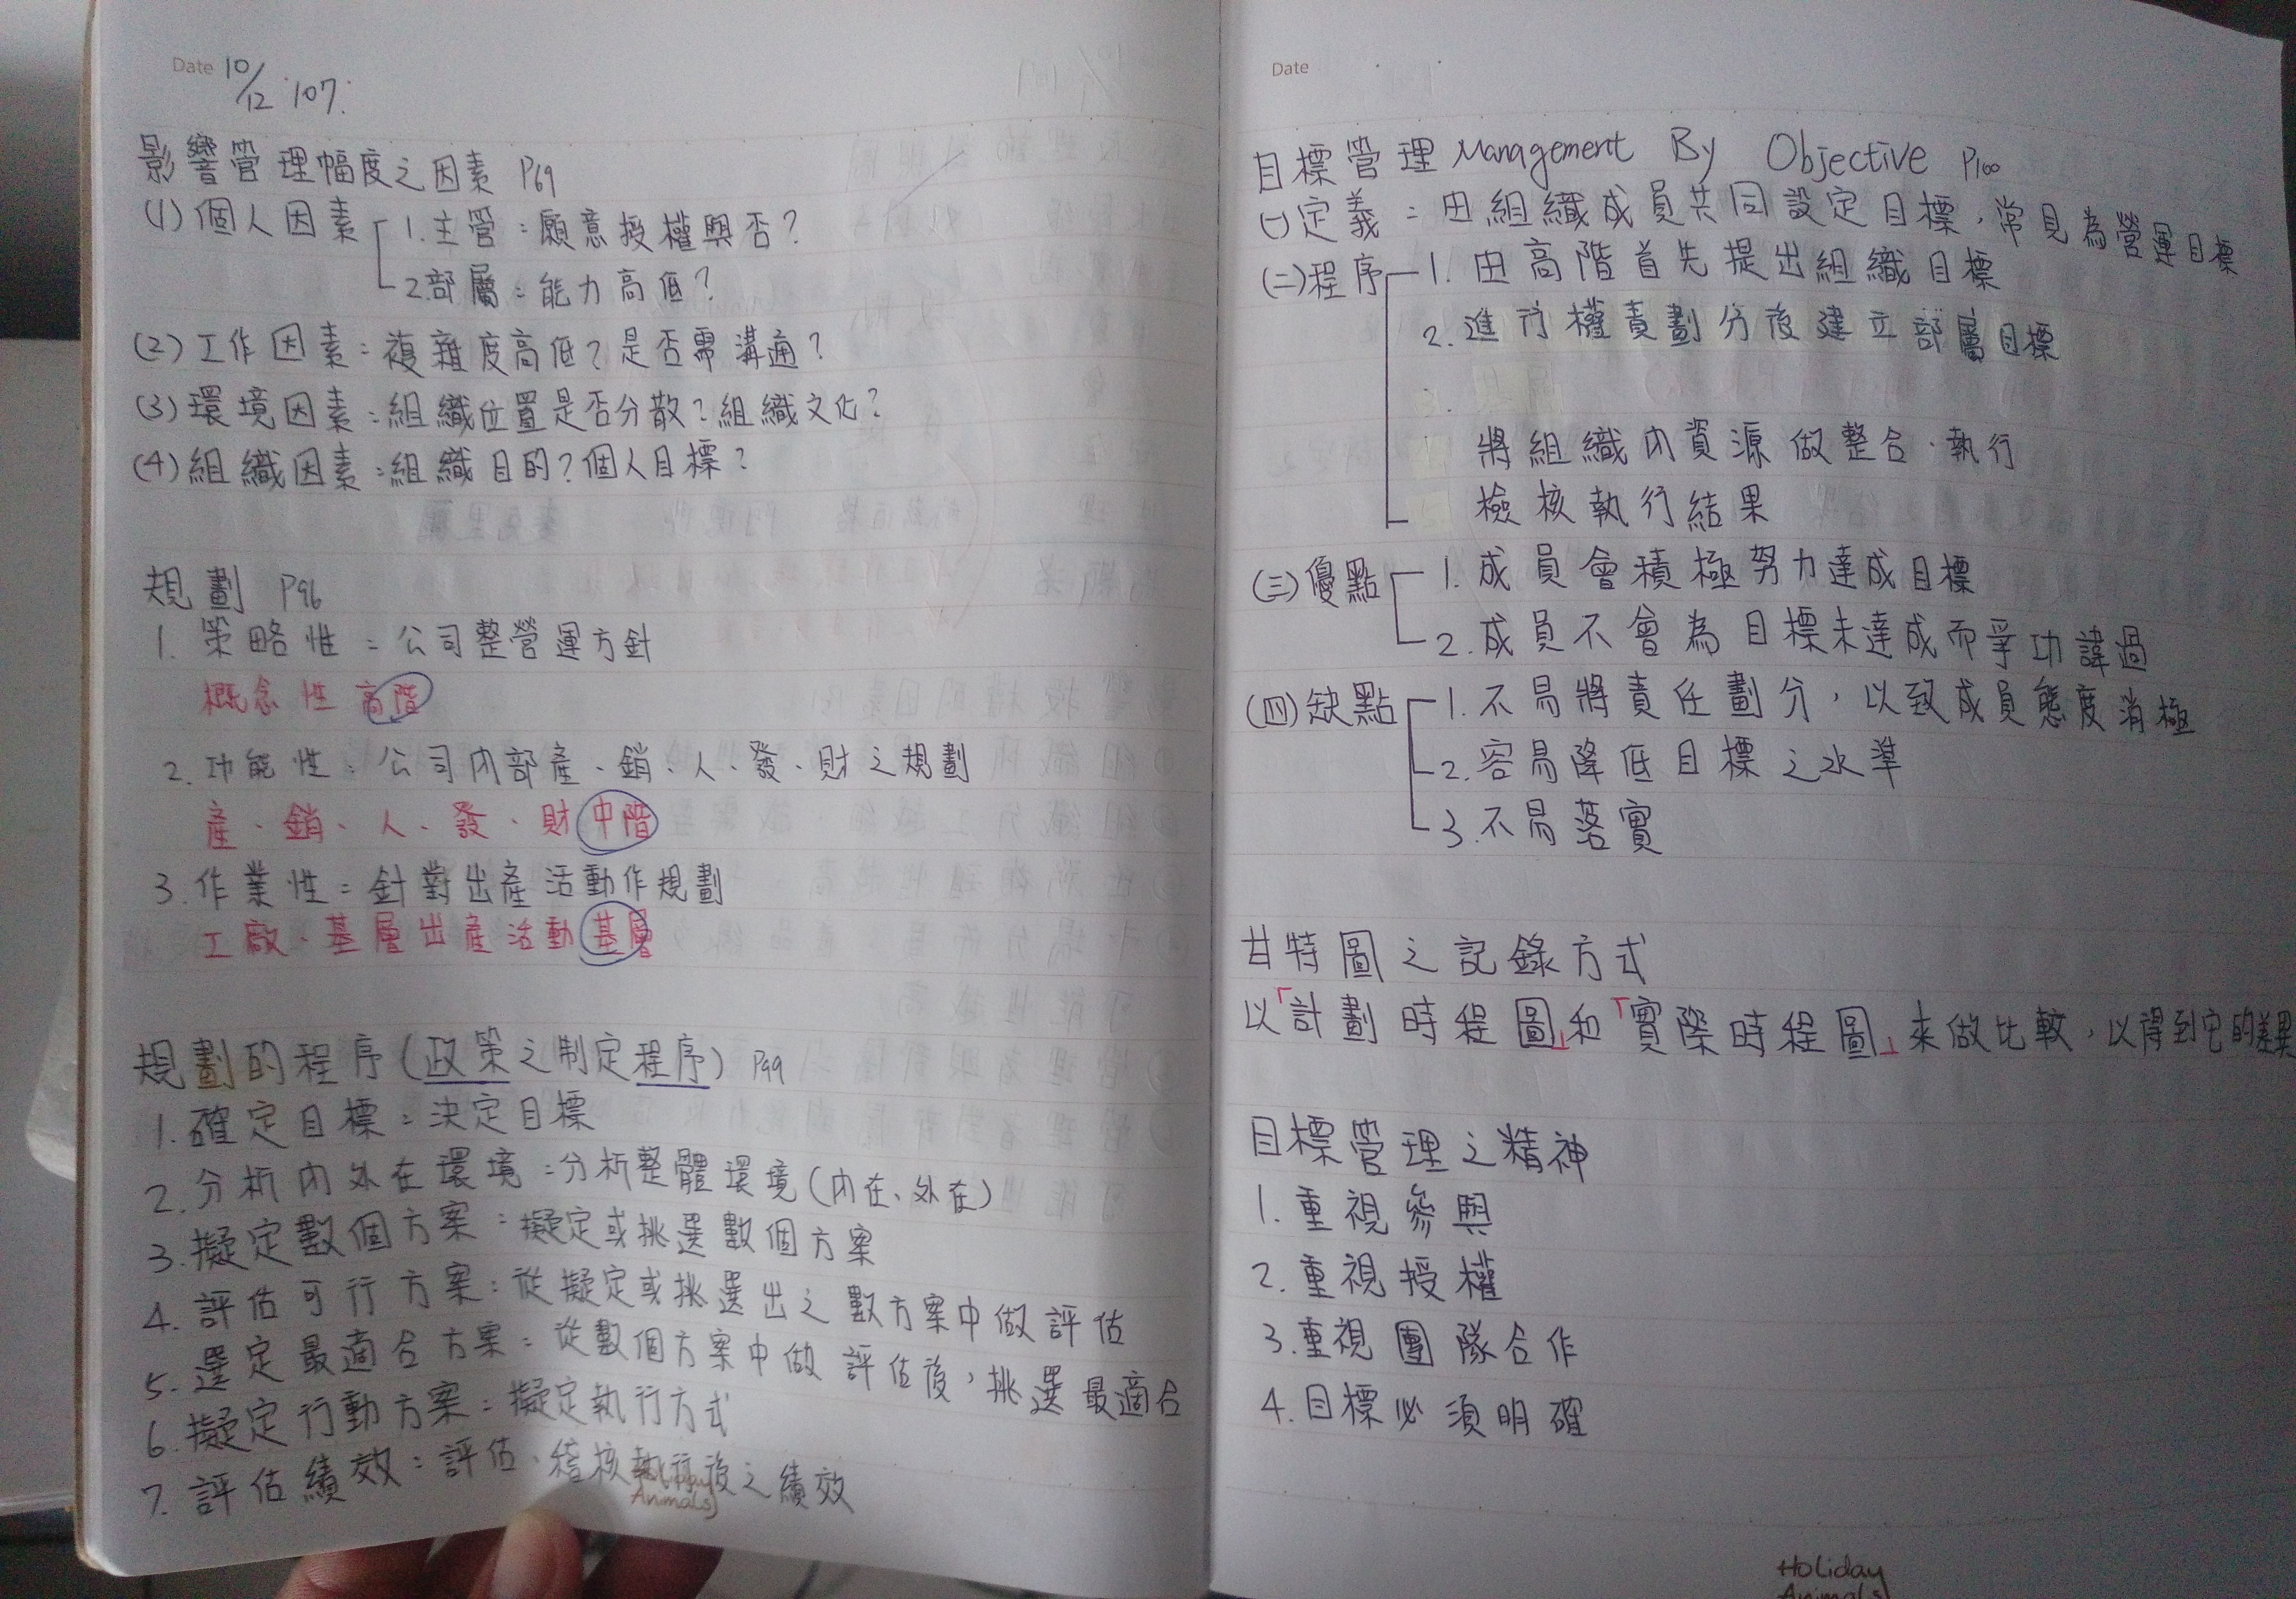 Date 10/12 '107.
影響管理幅度之因素 P69
(1)個人因素 1.主管:願意授權與否?
2.部屬:能力高低?
(2)工作因素:複雜度高低?是否需溝通?
(3)環境因素:組織位置是否分散?組織文化?
(4)組織因素:組織目的?個人目標?
規劃 P96
1. 策略性:公司整營運方針
概念性 高階
2. 功能性:公司內部產、銷、人、發、財之規劃
產、銷、人、發、財 中階
3. 作業性:針對出產活動作規劃
工廠、基層出產活動 基層
規劃的程序(政策之制定程序) P99
1. 確定目標:決定目標
2. 分析內外在環境:分析整體環境(內在、外在)
3. 擬定數個方案:擬定或挑選數個方案
4. 評估可行方案:從擬定或挑選出之數方案中做評估
5. 選定最適合方案:從數個方案中做評估後,挑選最適合
6. 擬定行動方案:擬定執行方式
7. 評估績效:評估、稽核執行後之績效
Holiday
Animals
Date
目標管理 Management By Objective P100
(一)定義:由組織成員共同設定目標,常見為營運目標
(二)程序 1. 由高階首先提出組織目標
2. 進行權責劃分後建立部屬目標
3.
將組織內資源做整合、執行
檢核執行結果
(三)優點 1. 成員會積極努力達成目標
2. 成員不會為目標未達成而爭功諱過
(四)缺點 1. 不易將責任劃分,以致成員態度消極
2. 容易降低目標之水準
3. 不易落實
甘特圖之記錄方式
以「計劃時程圖」和「實際時程圖」來做比較,以得到它的差異
目標管理之精神
1. 重視參與
2. 重視授權
3. 重視團隊合作
4. 目標必須明確
Holiday
Animals